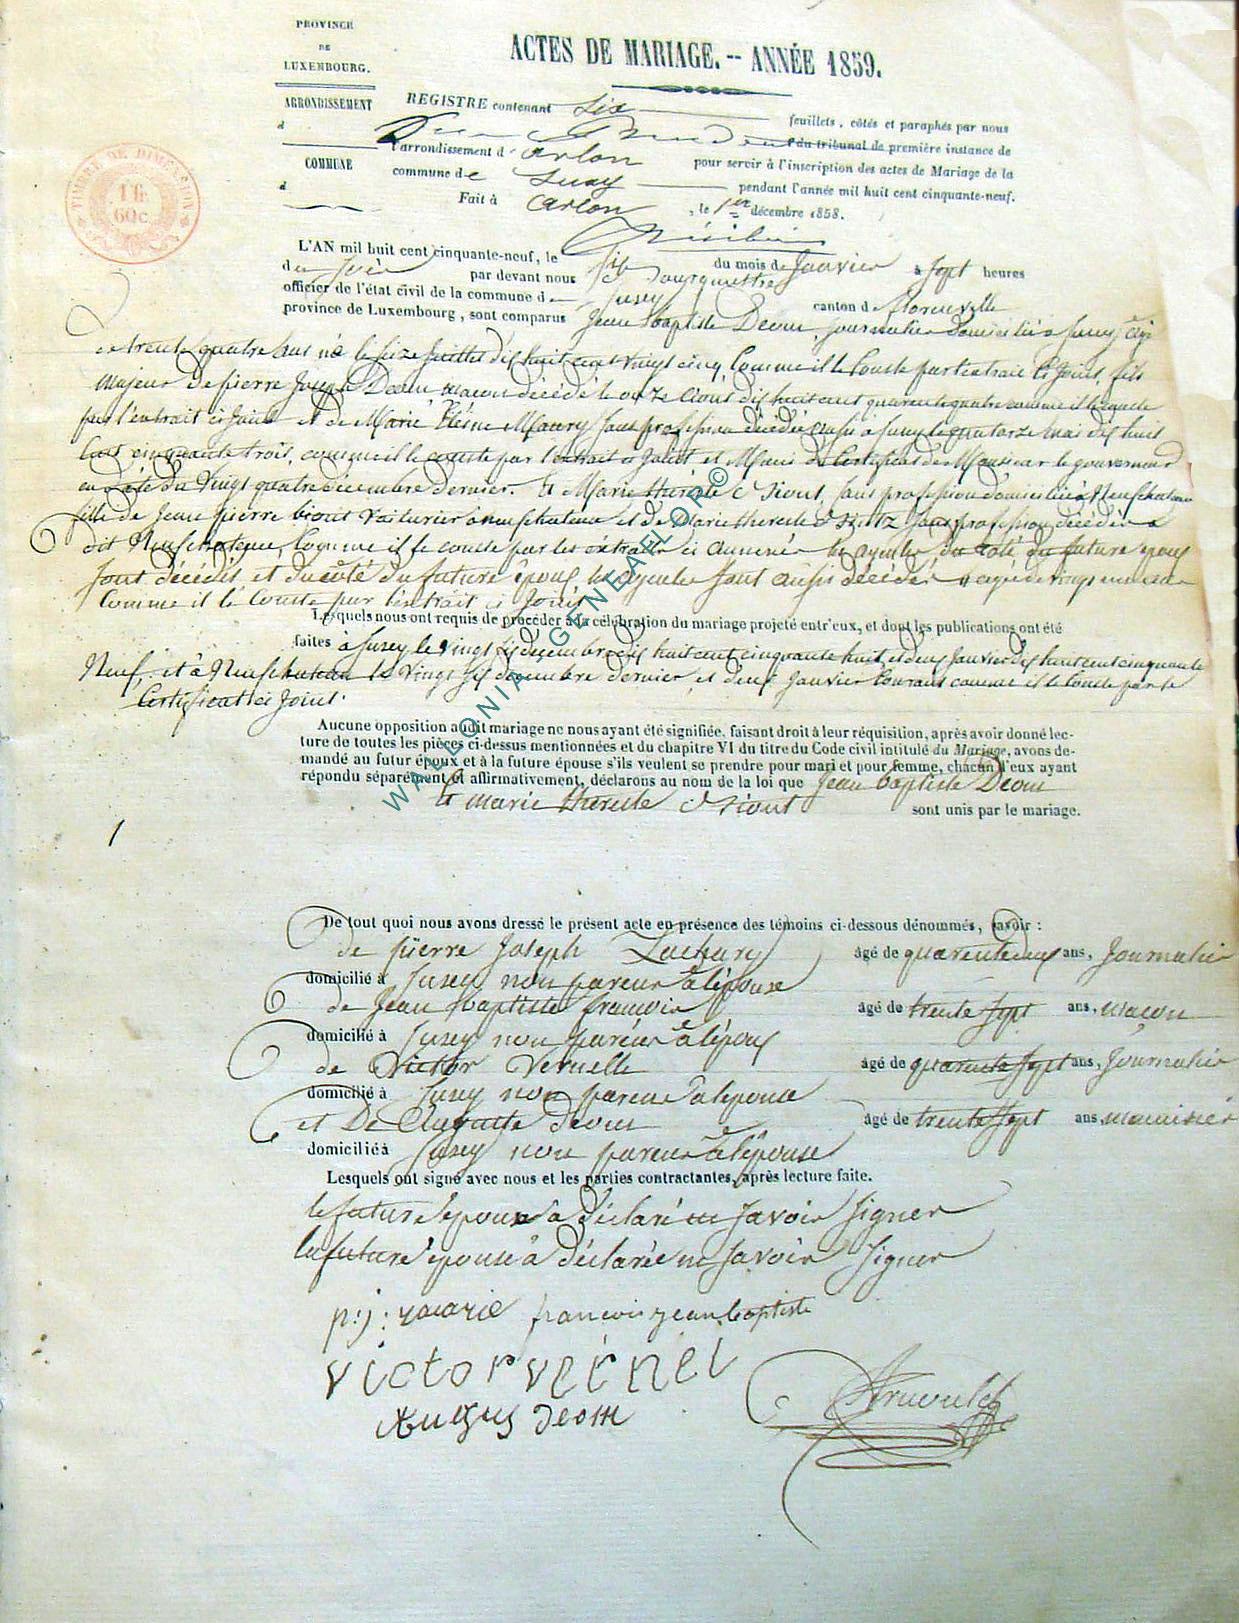 PROVINCE
DE
LUXEMBOURG.
ACTES DE MARIAGE. -- ANNÉE 1859.
ARRONDISSEMENT
d
COMMUNE
d
TIMBRE DE DIMENSION
1 fr.
60 c.
REGISTRE contenant Six feuillets, côtés et paraphés par nous
du tribunal de première instance de
l'arrondissement d'arlon pour servir à l'inscription des actes de Mariage de la
commune de Suxy pendant l'année mil huit cent cinquante-neuf.
Fait à arlon, le 1er décembre 1858.
L'AN mil huit cent cinquante-neuf, le six du mois de Janvier à sept heures
du soir par devant nous bourguemettre
officier de l'état civil de la commune de Suxey canton de florenville
province de Luxembourg, sont comparus Jean baptiste Deom, journalier domicilié à Suxey âgé
de trente quatre ans né le seize Juillet dix huit cent vingt cinq comme il le conste par l'extrait ci Joint, fils
Majeur de pierre Joseph Deom, maçon décédé le onze août dix huit cent quarente quatre comme il le conste
par l'extrait ci Joint et de Marie Maury sans profession décédée aussi à Suxy le quatorze mai dix huit
cent cinquante trois, comme il le conste par l'extrait ci Joint et Muni du Certificat de Monsieur le gouverneur
en date du vingt quatre décembre dernier. Et Marie therese sans profession domiciliée à Neufchateau
fille de Jean pierre voiturier à neufchateau et de Marie therese sans profession décédée à
dit Neufchateau, comme il le conste par les extraits ci annexés les ayeules du coté du future époux
sont décédés et du côté du future épouse, les ayeules sont aussi décédés agée de vingt
comme il le conste par l'extrait ci Joint
Lesquels nous ont requis de procéder à la célébration du mariage projeté entr'eux, et dont les publications ont été
faites à Suxey le vingt six décembre dix huit cent cinquante huit et deux Janvier dix huit cent cinquante
Neuf et à Neufchateau le vingt six décembre dernier et deux Janvier courant comme il le conste par le
Certificat ci Joint.
Aucune opposition audit mariage ne nous ayant été signifiée, faisant droit à leur réquisition, après avoir donné lec-
ture de toutes les pièces ci-dessus mentionnées et du chapitre VI du titre du Code civil intitulé du Mariage, avons de-
mandé au futur époux et à la future épouse s'ils veulent se prendre pour mari et pour femme, chacun d'eux ayant
répondu séparément et affirmativement, déclarons au nom de la loi que Jean baptiste Deom
et marie therese sont unis par le mariage.
De tout quoi nous avons dressé le présent acte en présence des témoins ci-dessous dénommés, savoir :
de pierre Joseph Zachary âgé de quarente deux ans, Journalier
domicilié à Suxey non parent à l'épouse
de Jean baptiste françois âgé de trente sept ans, maçon
domicilié à Suxey non parent à l'époux
de Victor Vernelle âgé de quarente sept ans, Journalier
domicilié à Suxey non parent à l'épouse
et De Auguste Deom âgé de trente sept ans, menuisier
domicilié à Suxey non parent à l'épouse
Lesquels ont signé avec nous et les parties contractantes, après lecture faite.
le future époux à déclaré ne savoir signer
la future épouse à déclarée ne savoir signer
p:j: zacarie françois jean baptiste
victor vernel
Augus deom
Arnould
WALLONIA GENEAFLOR©